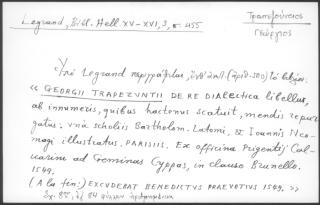 Legrand, Bibl. Hell. XV-XVI, 3, σ. 455
Τραπεζούντιος
Γεώργιος
Ὑπὸ Legrand περιγράφεται,
« GEORGII TRAPEZUNTII DE RE DIALectica libellus,
ab innumeris, quibus hactenus scatuit, mendis repur
gatus: unà scholiis Bartholom. Latomi, et Ioannis Neo-
magi illustratus. PARISIIS. Ex officina Prigentij Cal-
varini ad Geminas Cyppas, in clauso Brunello.
1549.
(A la fin:) EXCUDEBAT BENEDICTUS PRAEVOTIUS 1549. »